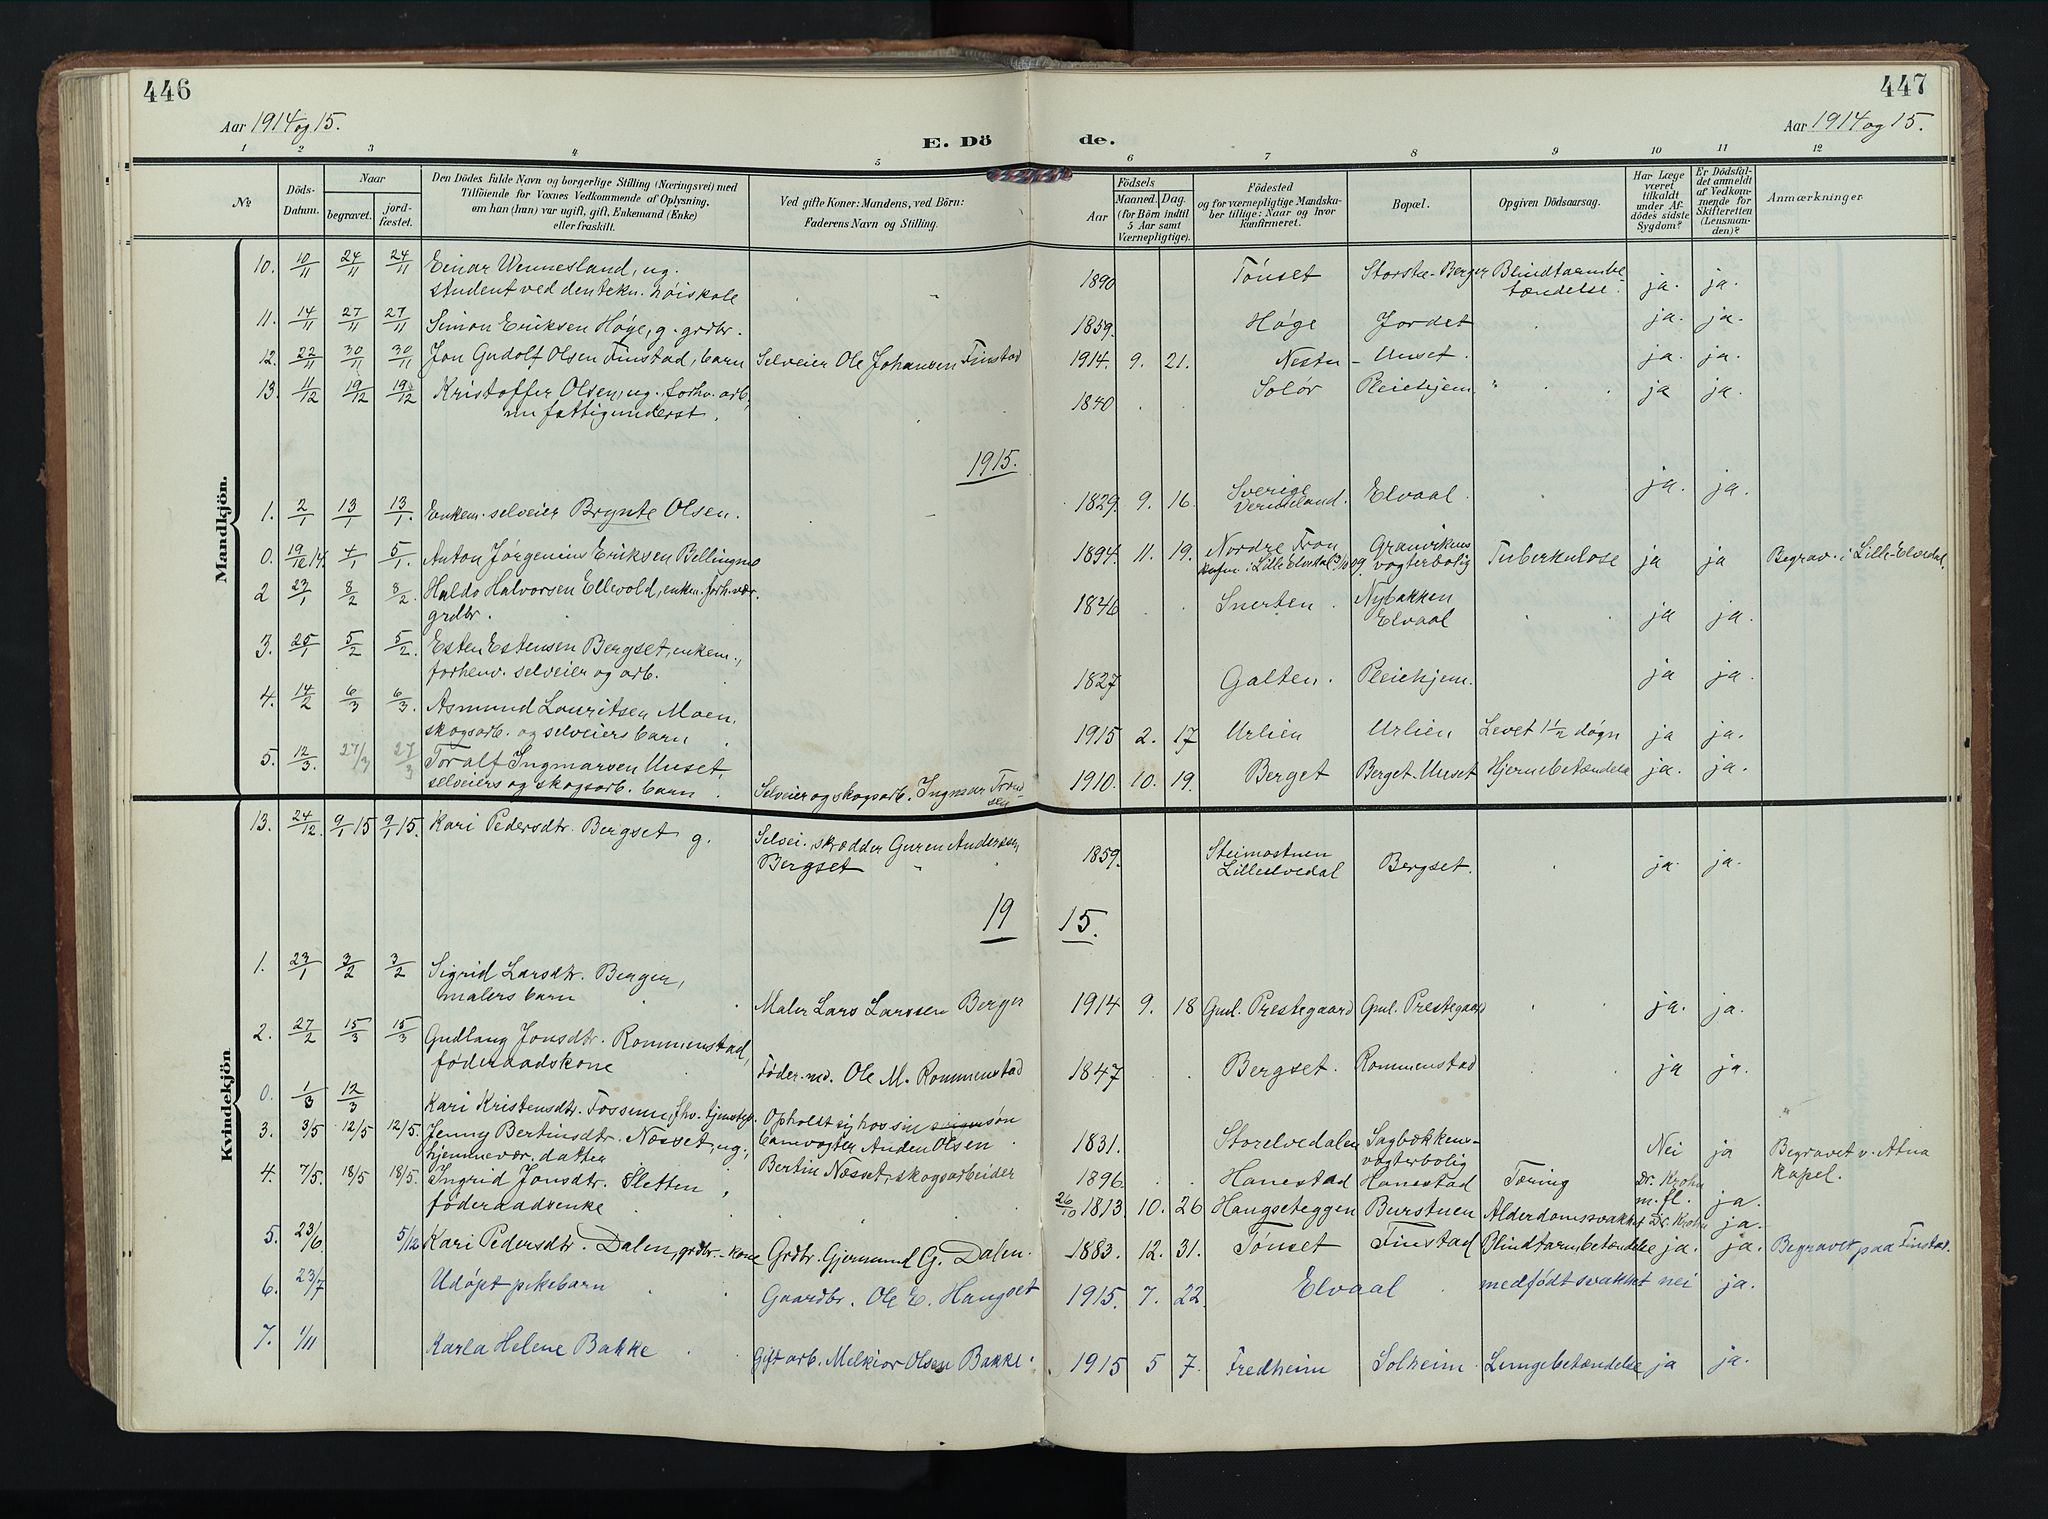 446
447
Aar 1914 og 15.
Aar 1914 og 15.
E. Dö de.
1 2 3 4 5 6 7 8 9 10 11 12
No
Döds-Datum.
Naar
begravet.
jord-fæstet.
Den Dödes fulde Navn og borgerlige Stilling (Næringsvei) med
Tilföiende for Voxnes Vedkommende af Oplysning,
om han (hun) var ugift, gift, Enkemand (Enke)
eller fraskilt.
Ved gifte Koner: Mandens, ved Börn:
Faderens Navn og Stilling.
Födsels
Aar
Maaned.
Dag.
(for Börn indtil
5 Aar samt
Værnepligtige).
Födested
og for værnepligtige Mandska-
ber tillige: Naar og hvor
konfirmeret.
Bopæl.
Opgiven Dödsaarsag.
Har Læge
været
tilkaldt
under Af-
dödes sidste
Sygdom?
Er Dödsfal-
det anmeldt
af Vedkom-
mende for
Skifteretten
(Lensman-
den)?
Anmærkninger
Mandkjön.
10. 10/11 24/11 24/11 Einar Wennesland, ug. 1890 Tönset Storstu-Berger Blindtarmbe ja. ja.
student ved den tekn. høiskole tændelse.
11. 14/11 27/11 27/11 Simon Eriksen Høge, g. grdbr. 1859. Høge Jordet ja. ja.
12. 22/11 30/11 30/11 Jon Gudolf Olsen Finstad, barn Selveier Ole Johansen Finstad 1914. 9. 21. Nestu - Unset. ja. ja.
13. 11/12 19/12 19/12 Kristoffer Olsen, ug. forhv. arb, 1840 Solør Pleiehjem. ja ja.
nu fattigunderst.
1915.
1. 2/1 13/1 13/1. Enkem. selveier Brynte Olsen. 1829. 9. 16. Sverige Vermeland. Elvaal. ja. ja.
0. 19/12 14. 4/1 5/1 Anton Jørgenius Eriksen Bellingmo 1894. 11. 19. Nordre Fron Granvikens Tuberkulose ja ja Begrav. i Lille-Elvedal.
konfm. i Lille Elvedal 09. vogterbolig
2 23/1 8/2 8/2. Haldo Halvorsen Ellevold, enkem. forh. vær. 1846 Snerten. Nybakken ja ja.
grdbr. Elvaal
3. 25/1 5/2 5/2. Esten Estensen Bergset, enkem., 1827 Galten. Pleiehjem. ja ja.
forhenv. selveier og arb.
4. 14/2 6/3 6/3. Asmund Lauritsen Moen, 1915 2. 17 Urlien Urlien Levet 1 1/2 døgn ja ja.
skogsarb. og selveiers barn
5. 12/3. 27/3 27/3 Toralf Ingmarsen Unset, Selveier og skogsarb. Ingmar Trondsen 1910. 10. 19. Berget Berget-Unset Hjernebetændelse ja. ja.
selveiers og skogsarb. barn.
Kvindekjön
13. 24/12 9/1 15 9/1 15. Kari Pedersdtr. Bergset g. Selvei. skrædder Guren Anderssen 1859. Steimostuen Bergset. ja. ja.
Bergset Lilleelvedal
19 15.
1. 23/1 3/2 3/2 Sigrid Larsdtr. Berger, Maler Lars Larssen Berger 1914 9. 18 Gml. Prestegaard Gml. Prestegaard ja. ja.
malers barn
2. 27/2 15/3 15/3 Gudlaug Jonsdtr. Rommenstad, Føder.md. Ole M. Rommenstad 1847 Bergset. Rommenstad ja ja.
føderaadskone
0. 1/3 12/3 Kari Kristensdtr. Fossum, fhv. tjenestep. Opholdt sig hos sin søn 1831. Storelvedalen Sagbækkens- Nei ja Begravet v. Atna
banevogter Anders Olsen vogterbolig Kapel.
3. 3/5 12/5 12/5. Jenny Bertinsdtr. Næsset, ug., Bertin Næsset, skogsarbeider 1896. Hanestad Hanestad Tæring Dr. Krohn m. fl. ja.
hjemmevær. datter
4. 7/5. 18/5 18/5. Ingrid Jonsdtr. Sletten, 26/10 1813. 10. 26 Hangseteggen Burstuen Alderdomssvakhet Dr. Krohn ja.
føderaadsenke
5. 23/6 5/12 Kari Pedersdtr. Dalen, grdbr.-kone Grdbr. Gjermund G. Dalen. 1883. 12. 31. Tönset Finstad Blindtarmbetændelse ja. ja. Begravet paa Finstad.
6. 23/7 Udöpt pikebarn Gaardbr. Ole E. Hangset 1915. 7. 22. Elvaal medfödt svakhet nei ja.
7. 1/11 Karla Helene Bakke Gift arb. Melkior Olsen Bakke. 1915 5 7. Fredheim Solheim. Lungebetændelse ja ja.